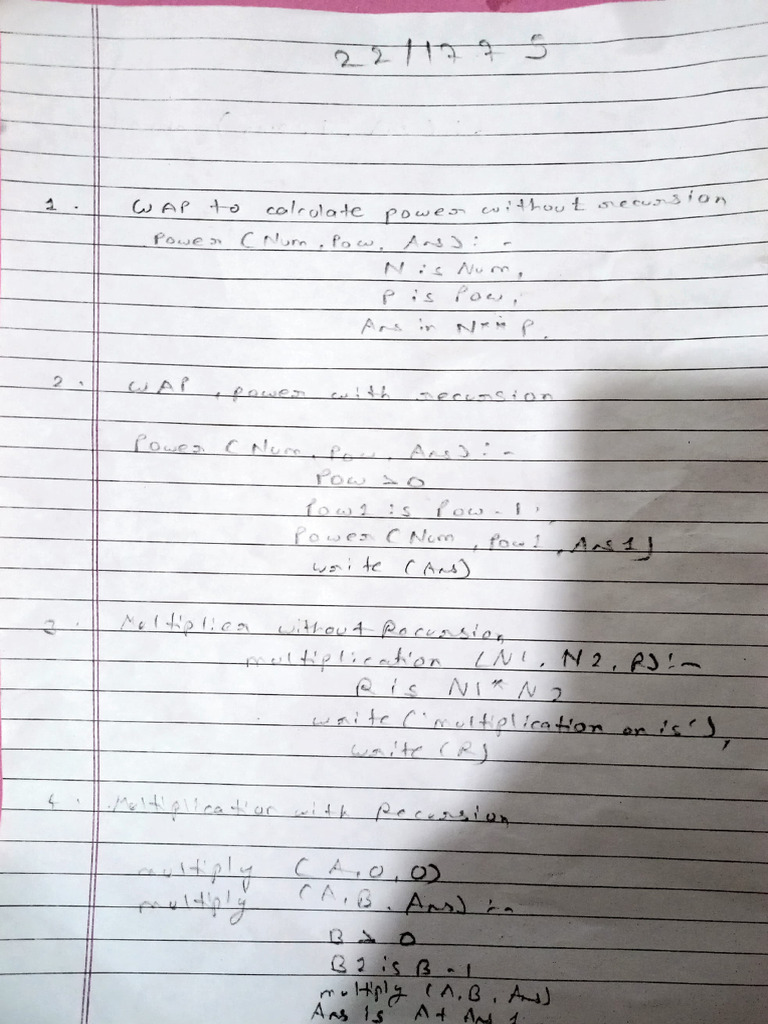 2211775
1. WAP to calculate power without recursion
Power (Num, Pow, Ans) :-
N is Num,
P is Pow,
Ans is N**P.
2. WAP, power with recursion
Power (Num, Pow, Ans) :-
Pow > 0
Pow1 is Pow-1,
Power (Num, Pow1, Ans1)
write (Ans)
3. without Recursion
multiplication (N1, N2, R) :-
R is N1*N2
write ('multiplication or is'),
write (R)
4. Multiplication with Recursion
multiply (A, 0, 0)
multiply (A, B, Ans) :-
B > 0
B2 is B-1
multiply (A, B, Ans)
Ans is A+ Ans1